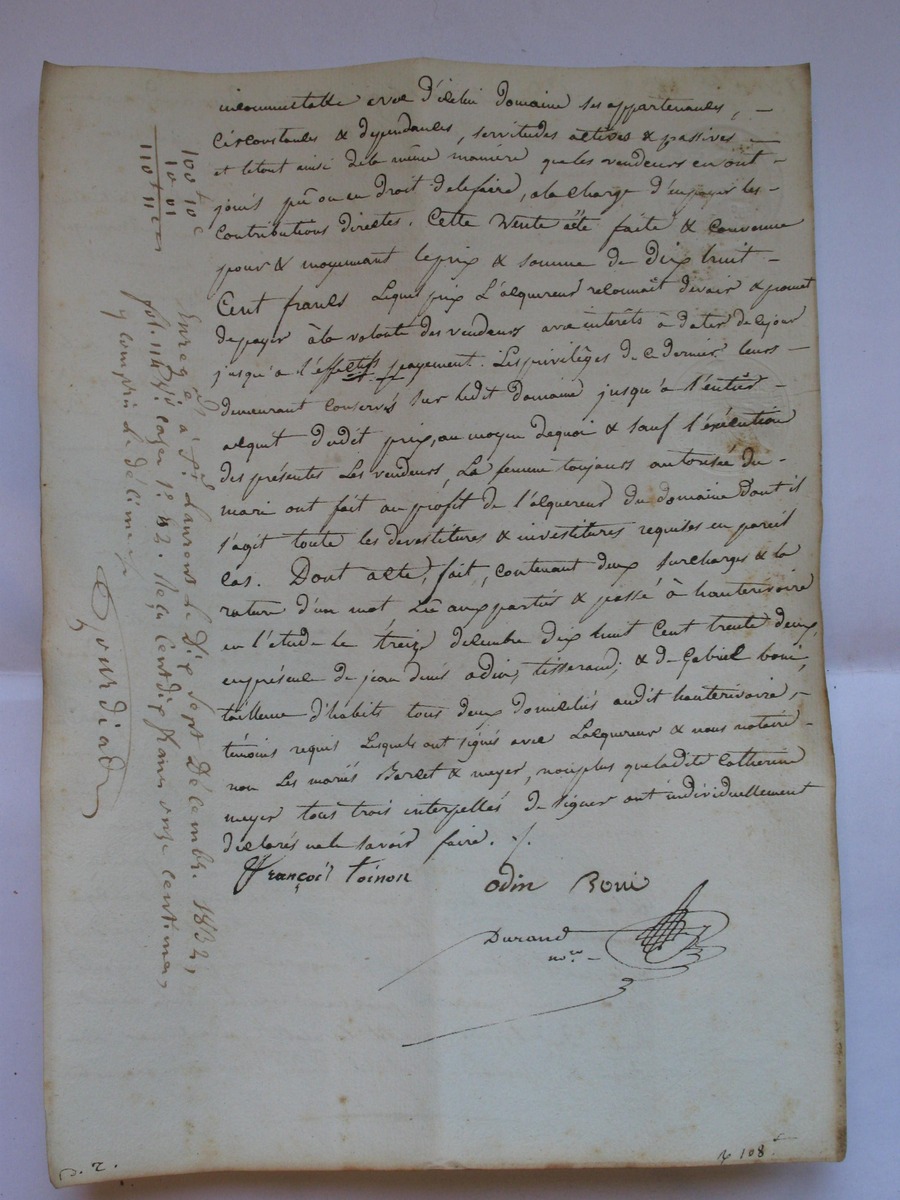 incommutable avec d'icelui Domaine ses appartenances, -
Circonstances & dependances, servitudes actives & passives -
et letout ainsi dela même manière queles vendeurs en ont -
jouis pû ou eu Droit delefaire, ala charge d'enpayer les -
contributions directes. Cette Vente a été faite & convenue
pour & moyennant leprix & somme de dix huit -
Cent francs Lequel prix L'acquereur reconnait devoir & promet
depayer à la volonté des vendeurs avec interêts à dater de ce jour
jusqu'a l'effectif payement. Les privilèges de ce dernier leurs -
demeurant conservés sur ledit domaine jusqu'à l'entier -
acquit dudit prix, au moyen dequoi & sauf l'exécution
des présentes Les vendeurs, La femme toujours autorisée du -
mari ont fait au profit de l'acquereur du domaine dont il
s'agit toute les devestitures & investitures requises en pareil
cas. Dont acte, fait, contenant deux surcharges & la
rature d'un mot Lû aux parties & passé à hauterivoire
en l'étude le treize décembre dix huit Cent trente deux,
enprésence de jean denis odin, tisserand; & de Gabriel boni,
tailleur d'habits tous deux domiciliés audit hauterivoire, -
témoins requis Lesquels ont signés avec L'acquereur & nous notaire -
non Les mariés Barlet & meyer, nonplus que ladite Catherine
meyer tous trois interpellés de signer ont individuellement
déclarés ne le savoir faire. ./.
François toinon
odin Boni
Durand
nore -
100f 10c
10 01
110f 11c
Enregé à St Laurent Le Dix sept Décembre 1832,
fol. 114 Vo Cases 1e & 2. Reçu Cent dix francs onze centimes,
y compris Le décime
Gourdiat
p. 2.
108f